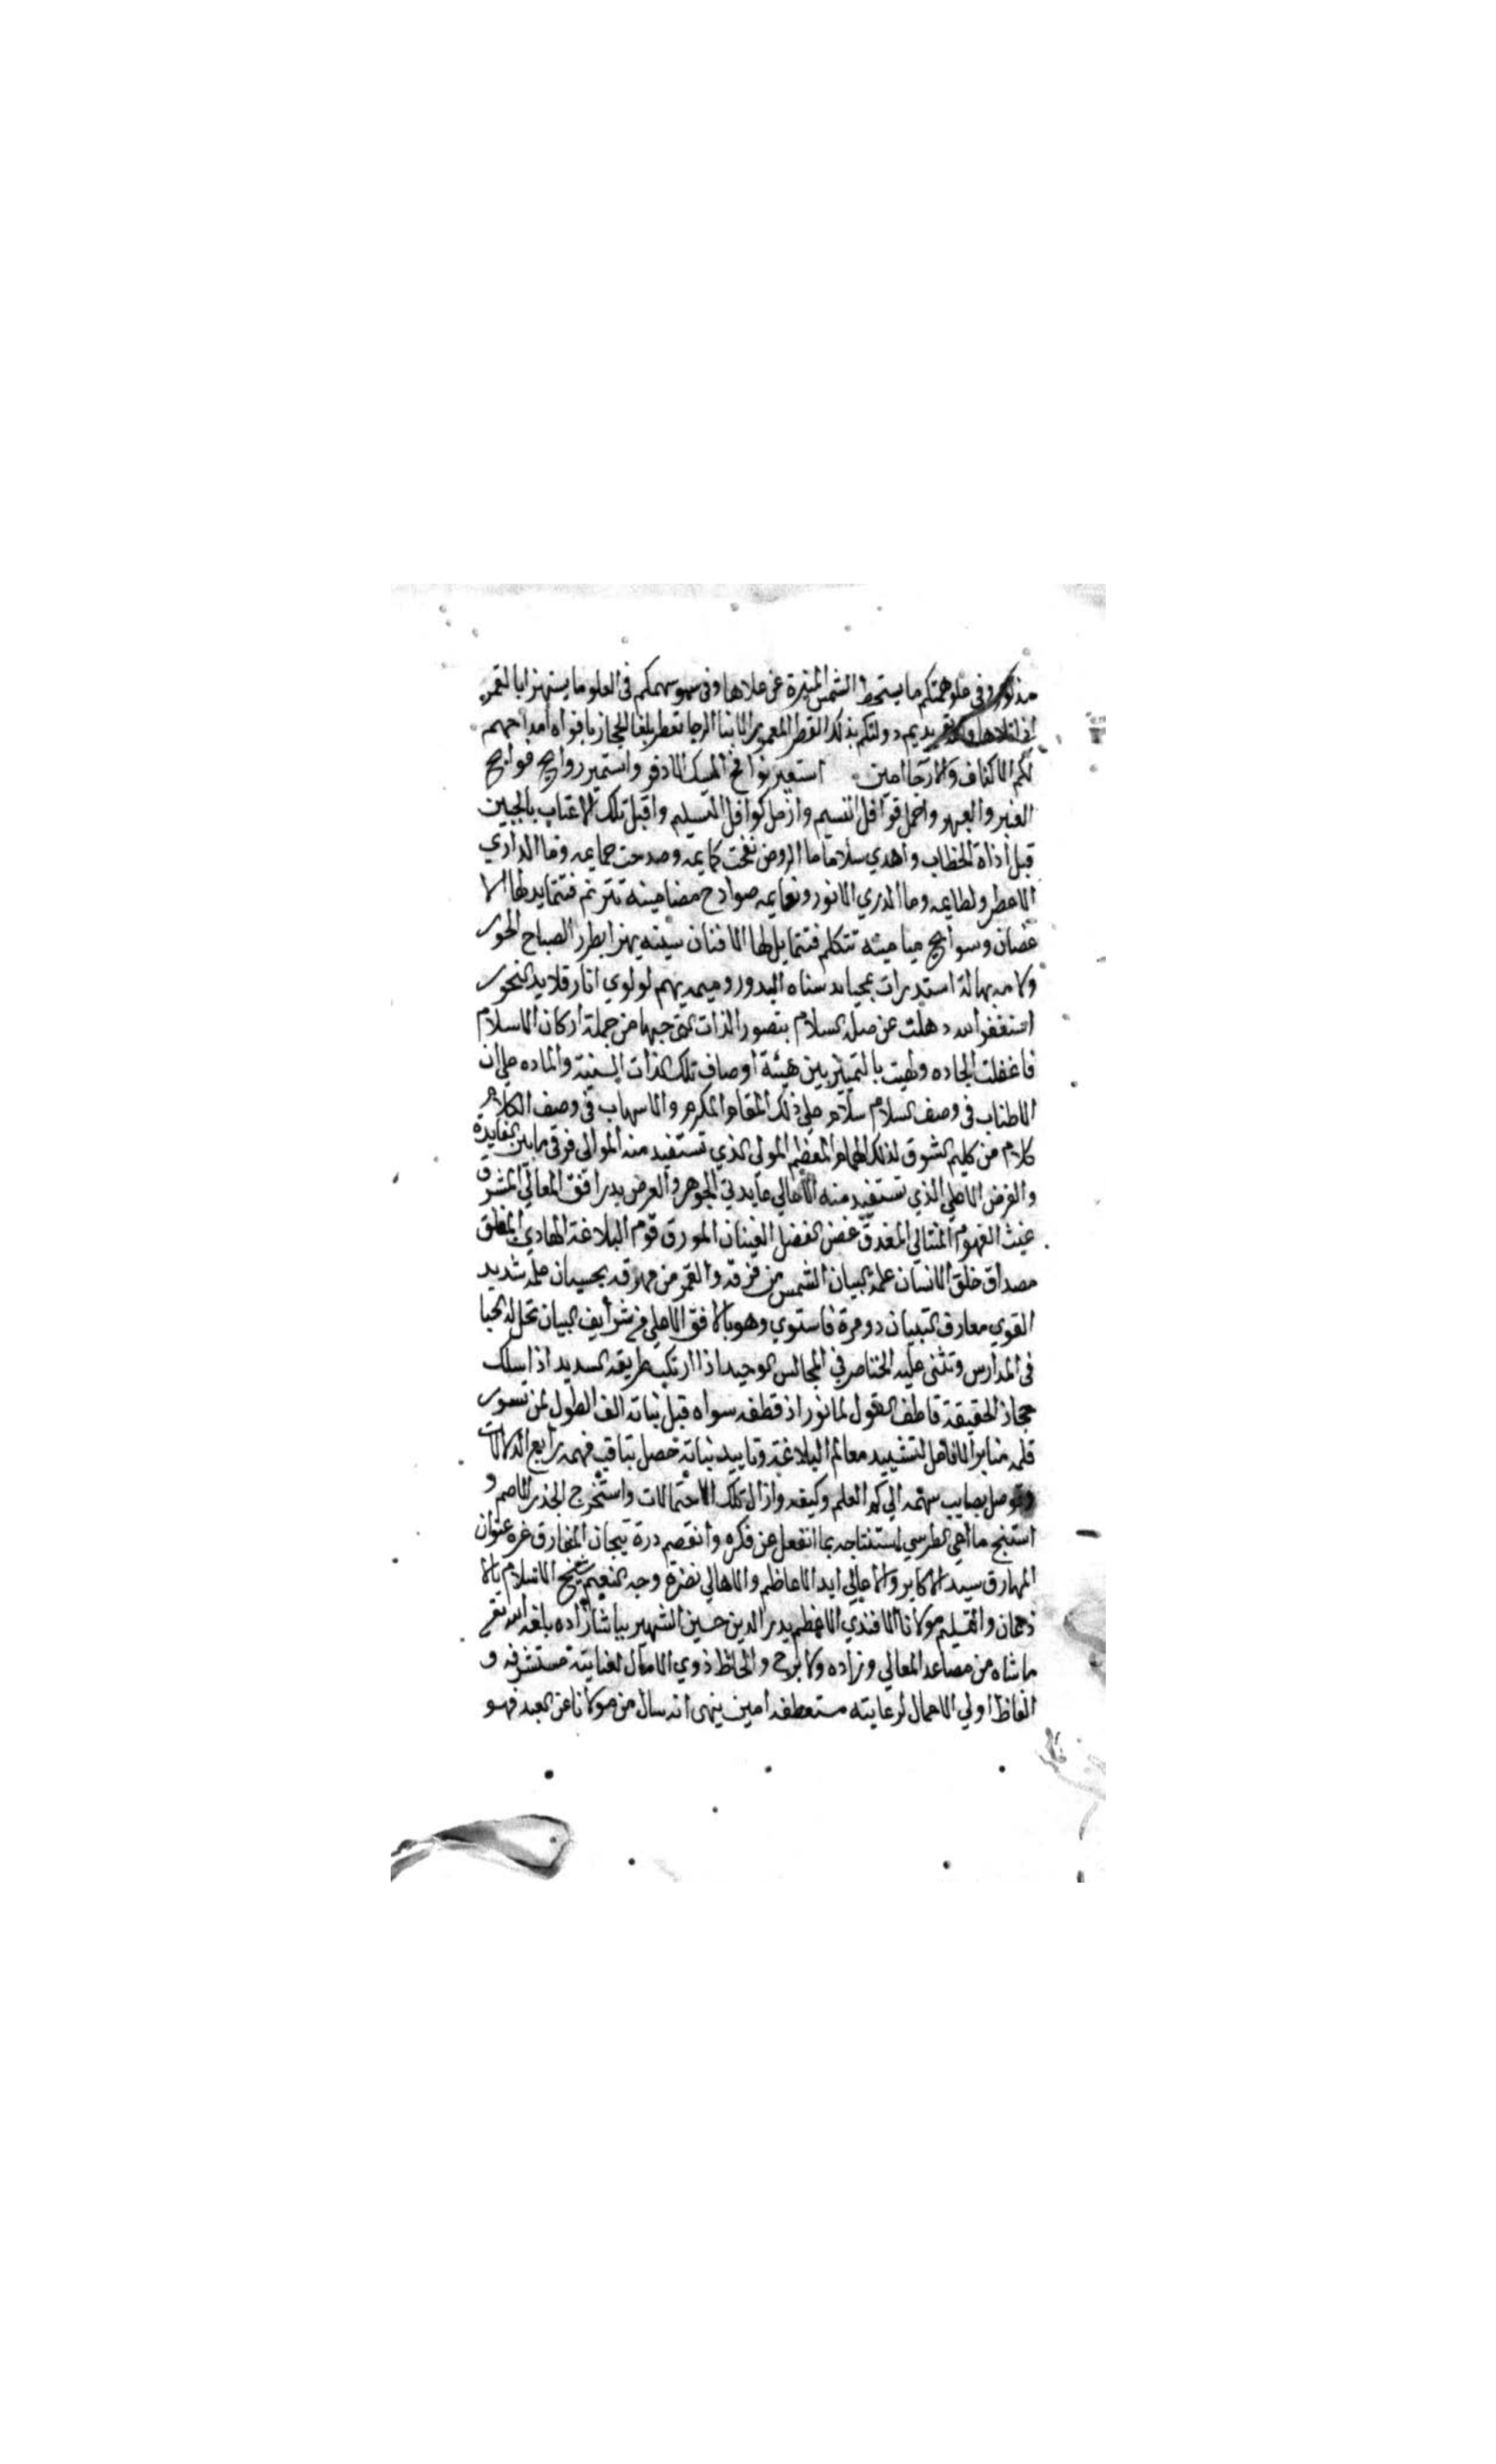 مذكور وفى علو همتكم ما يستحط الشمس المنيرة عن علاها وفى سمو سهمكم فى العلو ما يستهزا بالقمر
اذا تلاها يديم دولتكم بذلك القطر المعمور لابنا الرجا تعطر بلغا الحجاز بافواه امداحهم
لكم الاكناف والارجا امين استعير نوافح المسك الاذفر واستمير روايح فوايح
العنبر والعبهر واحمل قوافل النسيم وازمل كوافل التسليم واقبل تلك الاعتاب بالجبين
قبل اداة الخطاب واهدي سلاما ما الروض نفحت كمايمه وصدحت حمايمه وما الداري
الاعطر ولطايمه وما الدري الانور ونعايمه صوادح مضامينه تترنم فتتمايد لها الا
غصان وسواجع ميامينه تتكلم فتتمايل لها الافنان سينه يهزا بطرر الصباح الحور
ولامه بهالة استدرات بمحيا سناه البدور وميمه يهم لولوي انار قلايد النحور
استغفر الله ذهلت عن صلة السلام بتصور الذات التى حبها من جملة اركان الاسلام
فاغفلت الجاده ولهيت بالتمييز بين هيئة اوصاف تلك الذات السنية والماده على ان
الاطناب فى وصف السلام سلام على ذلك المقام المكرم والاسهاب فى وصف الكلام
كلام من كليم الشوق لذلك الهمام المعظم المولى الذي تستفيد منه الموالى فرق ما بين الفايدة
والغرض الاصلي الذي تستفيد منه الاهالي ما يدنى الجوهر والعرض بدر افق المعالي المشرق
غيث الفهوم المتتالي المغدق غصن الفضل الفينان المورق قوم البلاغة الهادي المفلق
مصداق خلق الانسان علمه البيان الشمس من فرقه والقمر من مهرقه بحسبان علمه شديد
القوي معارف التبيان ذو مرة فاستوي وهو بالافق الاعلى من شرايف البيان تحل له الحبا
فى المدارس وتثنى عليه الخناصر في المجالس الوحيد اذا ارتكب طريقه السديد اذا سلك
مجاز الحقيقة قاطف القول لما نور اذ قطفه سواه قبل نباته الف الطول لمن تسور
قلمه منابر الانامل لتشييد معالم البلاغة وتاييد نباته حصل بثاقب فهمه رابع الدلالات
وتوصل بصايب سهمه الي كم العلم وكيفه وازال تلك الاحتمالات واستخرج الجذر الاصم و
استنتج ما اعي الطرسي استنتاجه بما انفعل عن فكره وانقصم درة تيجان المفارق غره عنوان
المهارق سيد الاكابر والاعالي ايد الاعاظم والاهالي نضرة وجه النعيم شيخ الاسلام بالا
ذعان والتسليم مولانا الافندي الاعظم بدر الدين حسين الشهير بباشازاده بلغه الله تعالى
ما شاه من مصاعد المعالي وزاده ولا برح والحاظ ذوي الامال لعنايته مستشرفه و
الفاظ اولي الاعمال لرعايته مستعطفه امين ينهى انه سال من مولانا عن العبد فهو